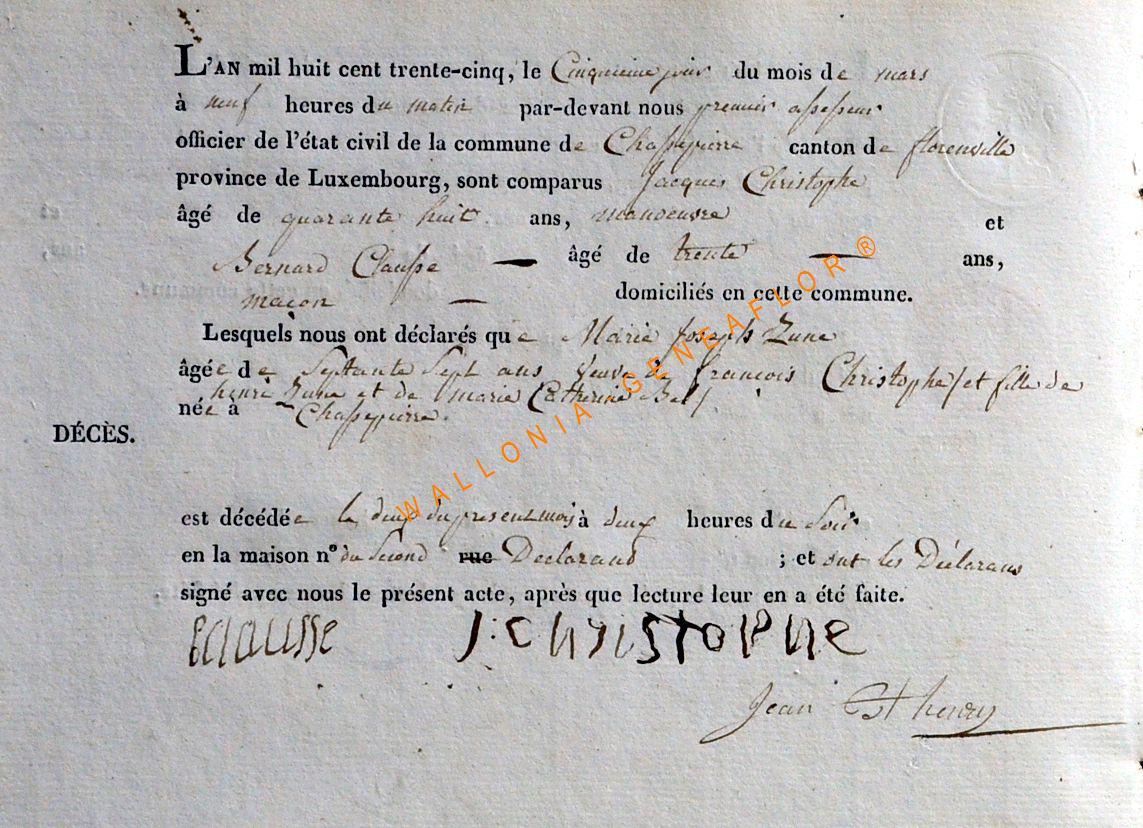 L'AN mil huit cent trente-cinq, le Cinquieme jour du mois de mars
à neuf heures du matin par-devant nous premier assesseur
officier de l'état civil de la commune de Chassepierre canton de florenville
province de Luxembourg, sont comparus Jacques Christophe
âgé de quarante huit ans, manoeuvre et
Bernard Clausse — âgé de trente — ans,
maçon — domiciliés en cette commune.
Lesquels nous ont déclarés que Marie Joseph Zune
âgée de Septante Sept ans Veuve de françois Christophe / et fille de
henri Zune et de marie Catherine
née à Chassepierre.
DÉCÈS.
est décédée le deux du present mois à deux heures du Soir
en la maison n° du Second rue Declarand ; et ont les Déclarans
signé avec nous le présent acte, après que lecture leur en a été faite.
BClausse J:CHRISTOPHE
Jean Bt henry
WALLONIA GENEAFLOR ®